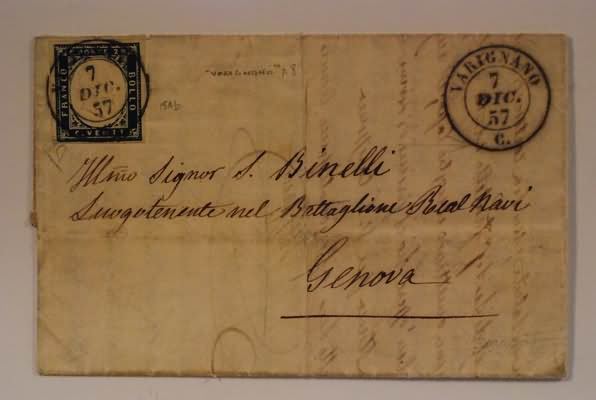 FRANCO BOLLO
C. VENTI
7
DIC.
57
"VARIGNANO"
15Ab
VARIGNANO
7
DIC.
57
C.
Illmo Signor S. Binelli
Luogotenente nel Battaglione Real Navi
Genova